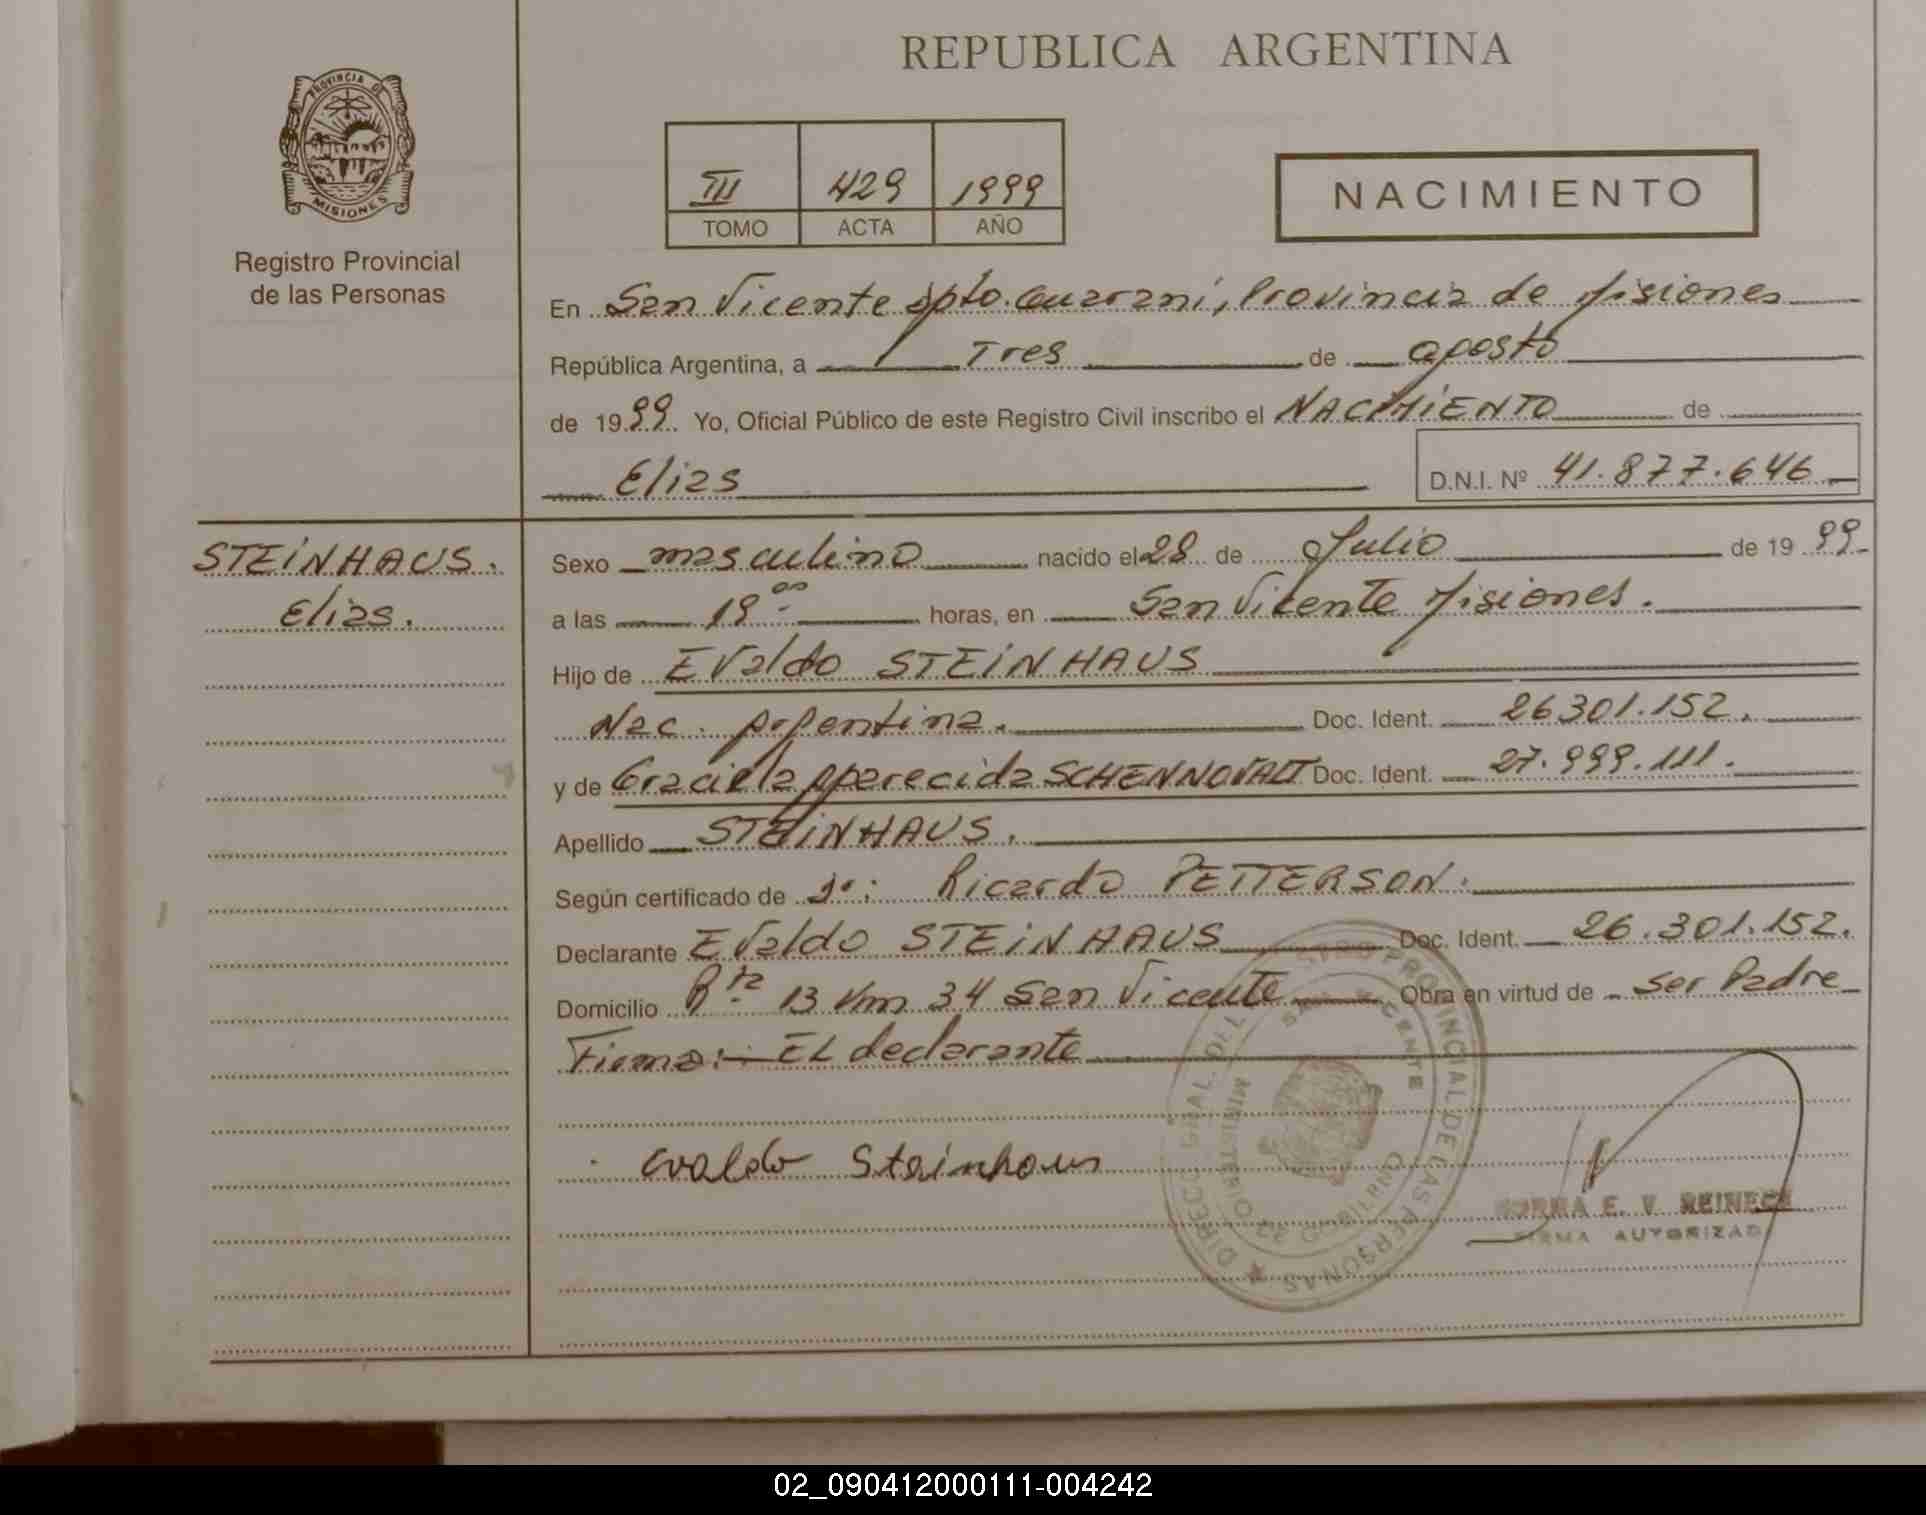 REPUBLICA ARGENTINA
PROVINCIA DE
MISIONES
Registro Provincial
de las Personas
III 429 1999
TOMO ACTA AÑO
NACIMIENTO
En San Vicente Dpto. Guaraní, Provincia de Misiones
República Argentina, a Tres de agosto
de 1999 Yo, Oficial Público de este Registro Civil inscribo el NACIMIENTO de
Elias D.N.I. Nº 41.877.646
STEINHAUS.
Elias.
Sexo masculino nacido el 28 de Julio de 1999
a las 19 00 horas, en San Vicente Misiones.
Hijo de EValdo STEINHAUS
Nac. Argentina. Doc. Ident. 26301.152.
y de Graciela Aparecida SCHENNOVALT Doc. Ident. 27.999.111.
Apellido STEINHAUS.
Según certificado de Ricardo PETTERSON.
Declarante EValdo STEINHAUS Doc. Ident. 26.301.152.
Domicilio Rta 13 Km 34 San Vicente Obra en virtud de ser Padre
Firma:- EL declarante
evaldo Steinhaus
DIRECC. GRAL. DEL REGISTRO PROVINCIAL DE LAS PERSONAS
SAN VICENTE
MINISTERIO DE GOBIERNO
NORMA E. V. REINECK
FIRMA AUTORIZADA
02_090412000111-004242